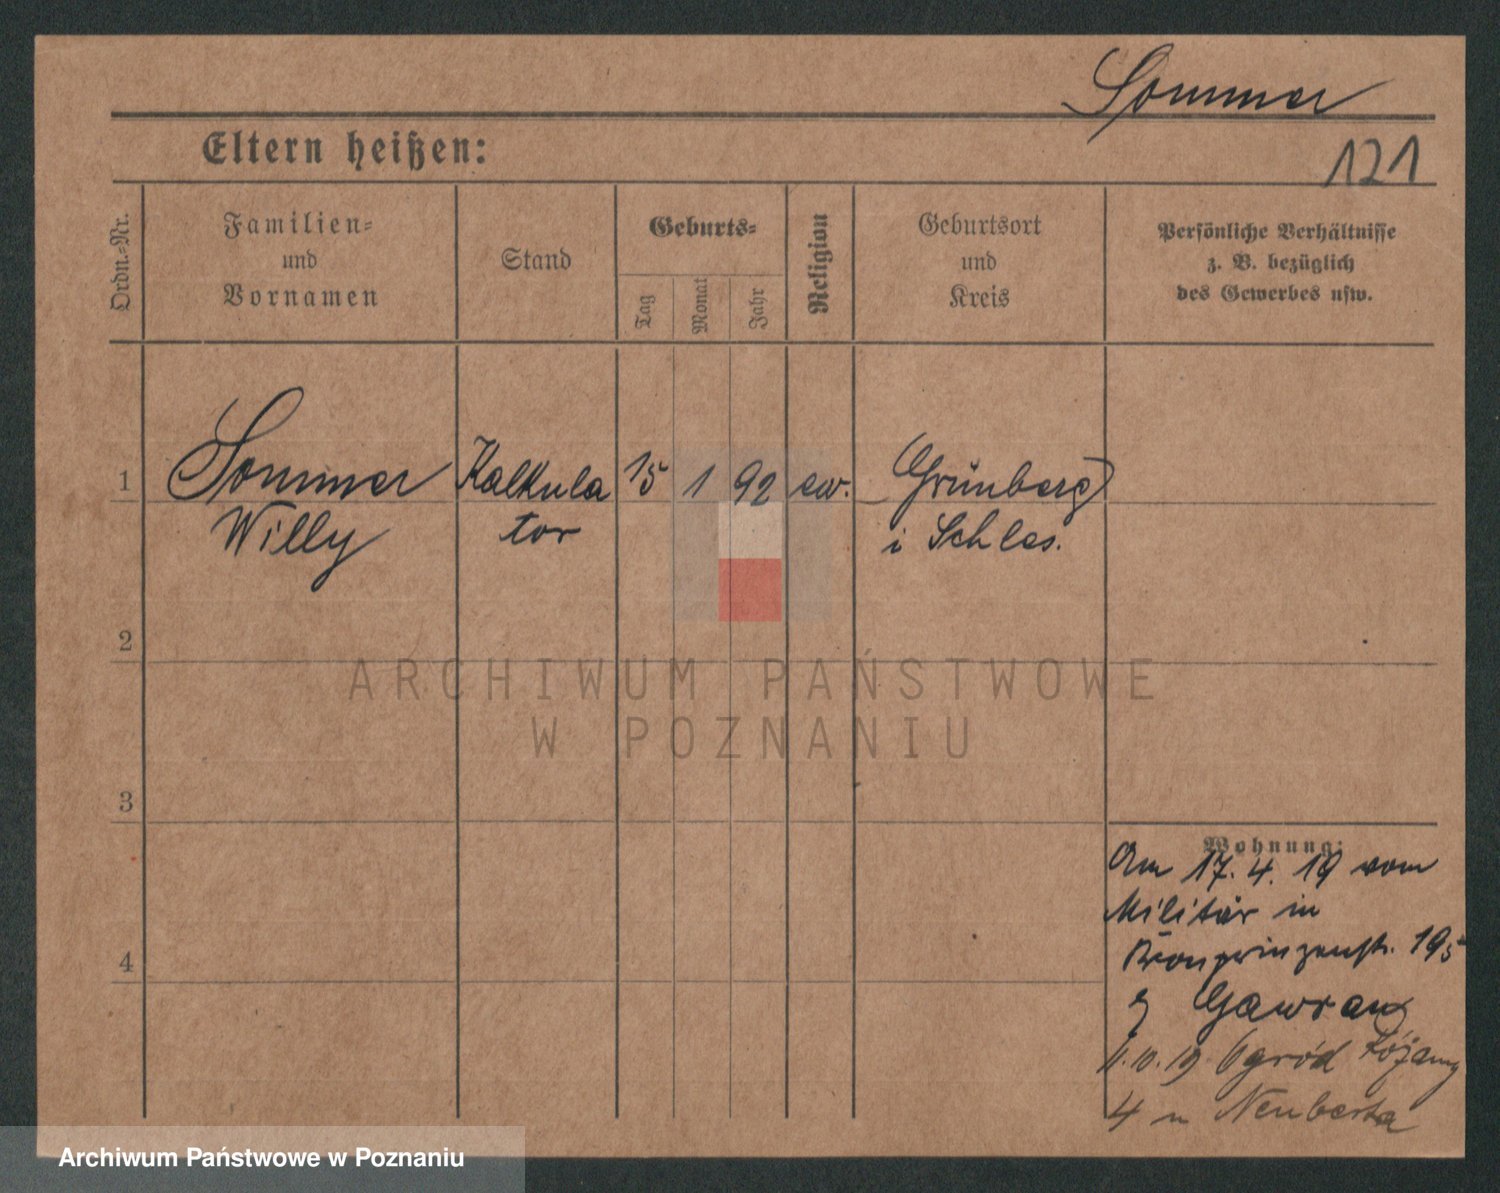 Sommer
121
Eltern heißen:
Ordn.-Nr.
Familien-
und
Vornamen
Stand
Geburts-
Tag
Monat
Jahr
Religion
Geburtsort
und
Kreis
Persönliche Verhältnisse
z. B. bezüglich
des Gewerbes usw.
1
Sommer
Willy
Kalkula
tor
15
1
92
ev.
Grünberg
i Schles.
2
ARCHIWUM PAŃSTWOWE
W POZNANIU
3
Wohnung:
Am 17. 4. 19 vom
Militär in
Kronprinzenstr. 195
Gawran
11.10.19. Ogród
4 u Neuberta
4
Archiwum Państwowe w Poznaniu